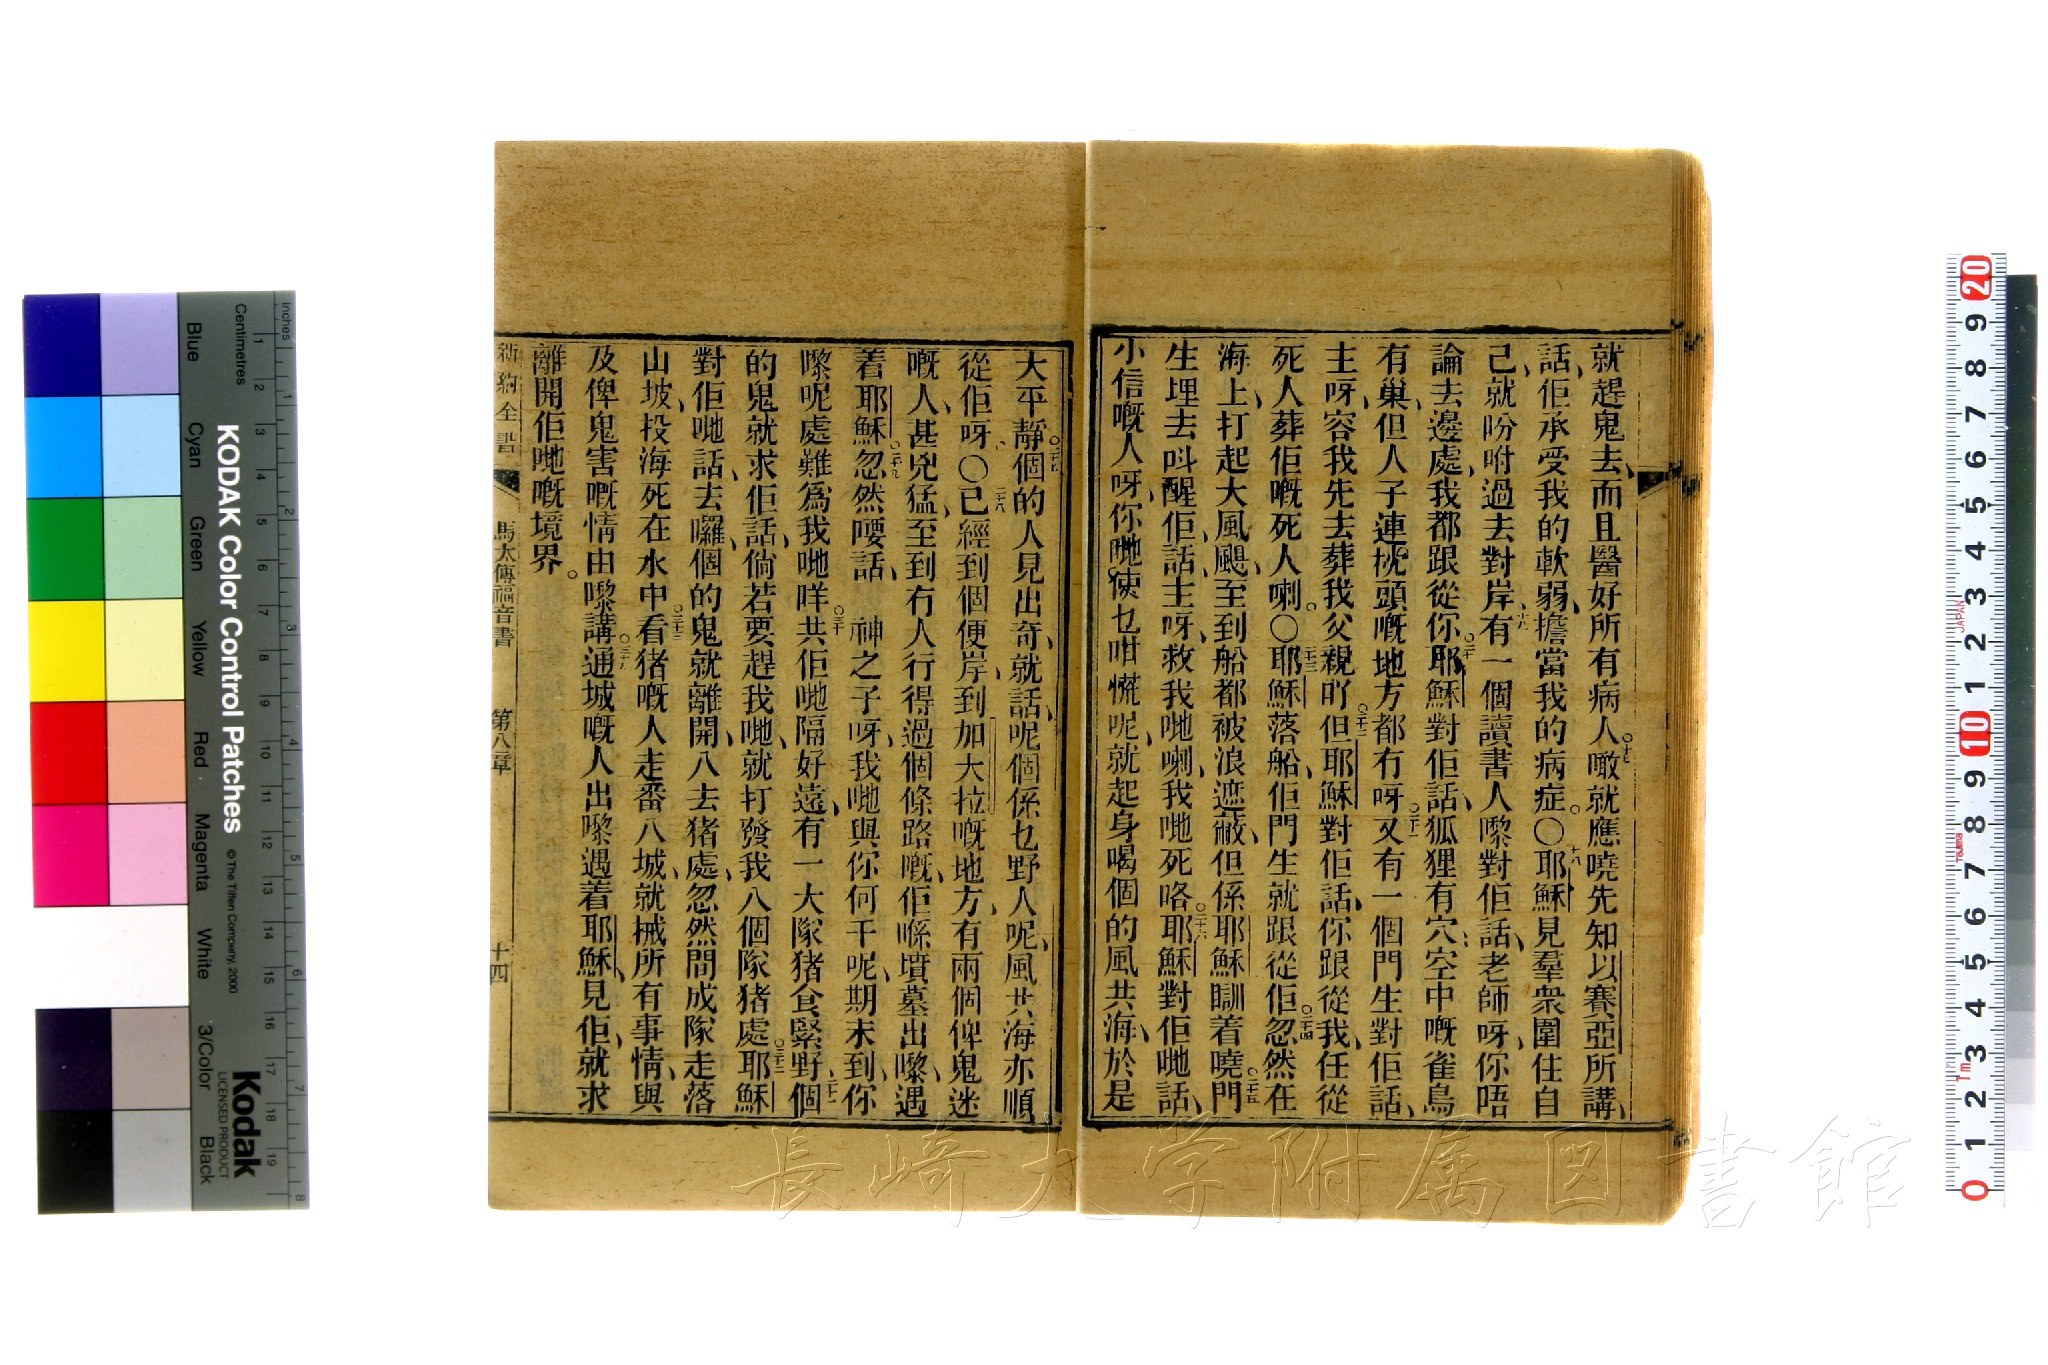 就趕鬼去、而且醫好所有病人、○十七噉就應曉先知以賽亞所講、
話、佢承受我的軟弱、擔當我的病症。○十八耶穌見羣衆圍住自
己、就吩咐過去對岸、十九有一個讀書人嚟對佢話、老師呀、你唔
論去邊處、我都跟從你、○二十耶穌對佢話、狐狸有穴、空中嘅雀鳥
有巢、但人子連枕頭嘅地方都冇呀、○二十一又有一個門生對佢話、
主呀、容我先去葬我父親吖、○二十二但耶穌對佢話、你跟從我、任從
死人葬佢嘅死人喇。○二十三耶穌落船、佢門生就跟從佢、○二十四忽然在
海上、打起大風颶、至到船都被浪遮蔽、但係耶穌瞓着、○二十五嘵門
生埋去呌醒佢話、主呀、救我哋喇、我哋死咯、○二十六耶穌對佢哋話、
小信嘅人呀、你哋使乜咁慌呢、就起身喝個的風共海、於是
大平靜、○二十七個的人見出奇、就話、呢個係乜野人呢、風共海亦順
從佢呀、○二十八已經到個便岸、到加大拉嘅地方、有兩個俾鬼迷
嘅人、甚兇猛、至到冇人行得過個條路嘅、佢喺墳墓出嚟、遇
着耶穌、○二十九忽然嗌話、神之子呀、我哋與你何干呢、期未到、你
嚟呢處難爲我哋咩、○三十共佢哋隔好遠、有一大隊猪食緊野、○三十一個
的鬼就求佢話、倘若要趕我哋、就打發我入個隊猪處、○三十二耶穌
對佢哋話、去囉、個的鬼就離開、入去猪處、忽然間成隊走落
山坡、投海死在水中、○三十三看猪嘅人走番入城、就械所有事情、與
及俾鬼害嘅情由嚟講、○三十四通城嘅人出嚟遇着耶穌、見佢、就求
離開佢哋嘅境界。
新約全書 馬太傳福音書 第八章 十四
KODAK Color Control Patches
© The Tiffen Company, 2000
Kodak
LICENSED PRODUCT
Inches
Centimetres
Blue Cyan Green Yellow Red Magenta White 3/Color Black
長崎大学附属図書館